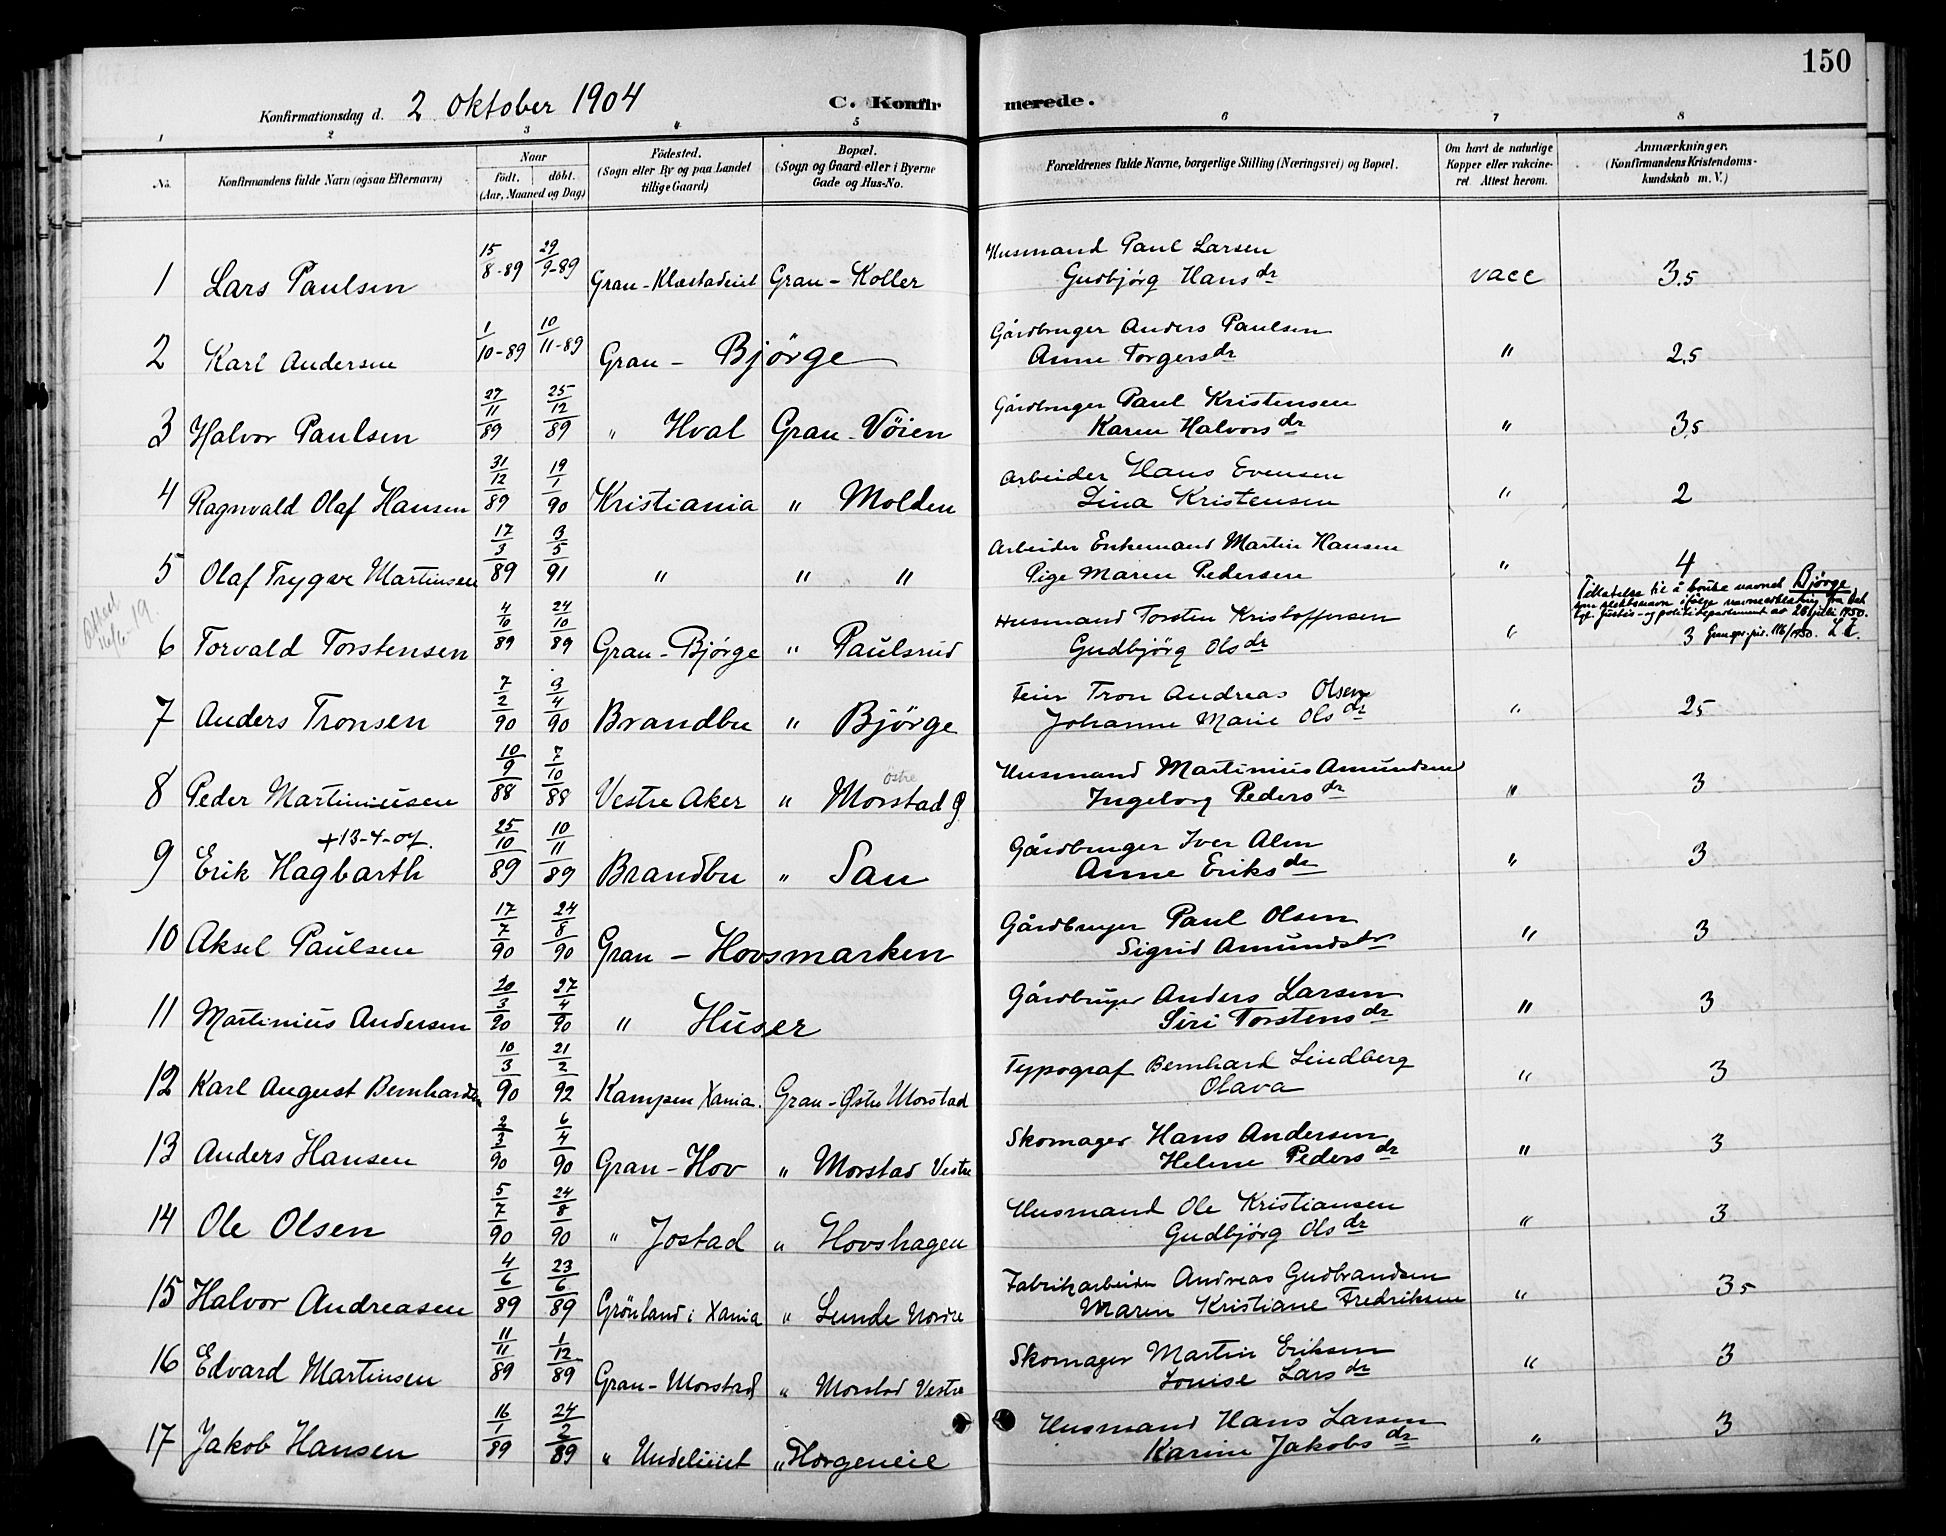 150
Konfirmationsdag d. 2 oktober 1904 C. Konfirmerede.
1 2 3 4 5 6 7 8
No. Konfirmandens fulde Navn (ogsaa Efternavn) Naar født. døbt. (Aar, Maaned og Dag) Fødested. (Sogn eller By og paa Landet tillige Gaard) Bopæl. (Sogn og Gaard eller i Byerne Gade og Hus-No. Forældrenes fulde Navne, borgerlige Stilling (Næringsvei) og Bopæl. Om havt de naturlige Kopper eller vakcineret. Attest herom. Anmærkninger. (Konfirmandens Kristendomskundskab m. V.)
1 Lars Paulsen 15/8-89 29/9-89 Gran-Klæstadeiet Gran-Koller Husmand Paul Larsen
Gudbjörg Hansdr vacc 3.5
2 Karl Andersen 1/10-89 10/11-89 Gran - Björge Gårdbruger Anders Paulsen
Anne Torgersdr " 2.5
3 Halvor Paulsen 27/11/89 25/12/89 " Hval Gran-Vöien Gårdbruger Paul Kristensen
Karen Halvorsdr " 3.5
4 Ragnvald Olaf Hansen 31/12/89 19/1/90 Kristiania " Molden Arbeider Hans Evensen
Lina Kristensen " 2
5 Olaf Trygve Martinsen 17/3/89 3/5/91 " " " Arbeider Enkemand Martin Hansen
Pige Maren Pedersen " 4
Tillatelse til å bruke navnet Björge
som slektsnavn ifölge navneendring fra det
kgl. justis- og politidepartement av 28 juli 1950.
6 Torvald Torstensen 4/10/89 24/10/89 Gran-Björge " Paulsrud Husmand Torsten Kristoffersen
Gudbjörg Olsdr " 3
7 Anders Tronsen 7/2/90 3/4/90 Brandbu " Björge Feier Tron Andreas Olsen
Johanne Marie Olsdr " 25
8 Peder Martiniusen 10/9/88 7/10/88 Vestre Aker " Morstad östre Husmand Martinius Amundsen
Ingeborg Pedersdr " 3
+13-4-07.
9 Erik Hagbarth 25/10/89 10/11/89 Brandbu " San Gårdbruger Iver Alm
Anne Eriksdr " 3
10 Aksel Paulsen 17/7/90 24/8/90 Gran - Hovsmarken Gårdbruger Paul Olsen
Sigrid Amundsdr " 3
11 Martinius Andersen 20/3/90 27/4/90 " Huser Gårdbruger Anders Larsen
Siri Torstensdr " 3
12 Karl August Bernhardsen 10/3/90 21/2/92 Kampen Xania. Gran-Østre Morstad Typograf Bernhard Lindberg
Olava " 3
13 Anders Hansen 2/3/90 6/4/90 Gran-Hov " Morstad Vestre Skomager Hans Andersen
Helene Pedersdr " 3
14 Ole Olsen 5/7/90 24/8/90 " Jostad " Hovshagen Husmand Ole Kristiansen
Gudbjörg Olsdr " 3
15 Halvor Andreasen 4/6/89 23/6/89 Grönland i Xania " Lunde Nordre Fabrikarbeider Andreas Gudbrandsen
Maren Kristiane Fredriksen " 35
16 Edvard Martinsen 11/11/89 1/12/89 Gran-Morstad " Morstad Vestre Skomager Martin Eriksen
Louise Larsdr " 3
17 Jakob Hansen 16/1/89 24/2/89 " Undelieiet " Horgeneie Husmand Hans Larsen
Karine Jakobsdr " 3